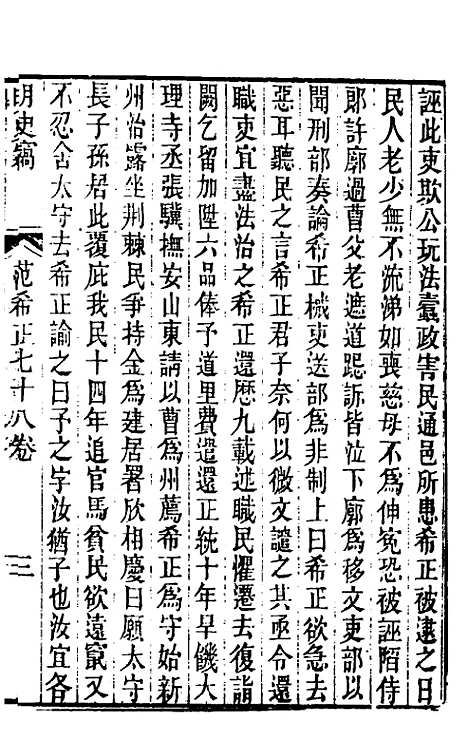 誣此吏欺公玩法蠹政害民通邑所患希正被逮之日
民人老少無不流涕如喪慈母不爲伸寃恐被誣陷侍
郞許廓過曹父老遮道跽訴皆泣下廓爲移文吏部以
聞刑部奏論希正械吏送部爲非制上曰希正欲急去
惡耳聽民之言希正君子奈何以微文譴之其亟令還
職吏宜盡法治之希正還歷九載述職民懼遷去復詣
闕乞留加陞六品俸予道里費遣還正統十年旱饑大
理寺丞張驥撫安山東請以曹爲州薦希正爲守始新
州治露坐荆棘民爭持金爲建居署欣相慶曰願太守
長子孫居此覆庇我民十四年追官馬貧民欲遠竄又
不忍舍太守去希正諭之曰予之字汝猶子也汝宜各
明史竊 范希正七十八卷 三